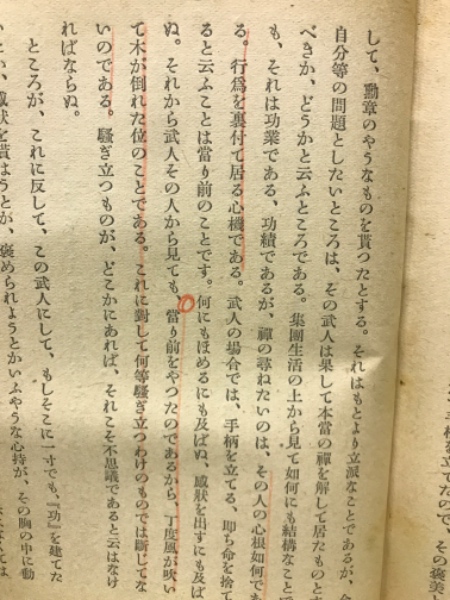 手柄を立てたので、その褒美
して、勳章のやうなものを貰つたとする。それはもとより立派なことであるが、今
自分等の問題としたいところは、その武人は果して本當の禪を解して居たものとす
べきか、どうかと云ふところである。集團生活の上から見て如何にも結構なことで
も、それは功業である、功績であるが、禪の尋ねたいのは、その人の心根如何であ
る。行爲を裏付て居る心機である。武人の場合では、手柄を立てる、卽ち命を捨て
ると云ふことは當り前のことです。何にもほめるにも及ばぬ、感狀を出すにも及ば
ぬ。それから武人その人から見ても、當り前をやつたのであるから、丁度風が吹い
て木が倒れた位のことである。これに對して何等騷ぎ立つわけのものでは斷じてな
いのである。騷ぎ立つものが、どこかにあれば、それこそ不思議であると云はなけ
ればならぬ。
ところが、これに反して、この武人にして、もしそこに一寸でも、『功』を建てた
感狀を貰はうとか、褒められようとかいふやうな心持が、その胸の中に動